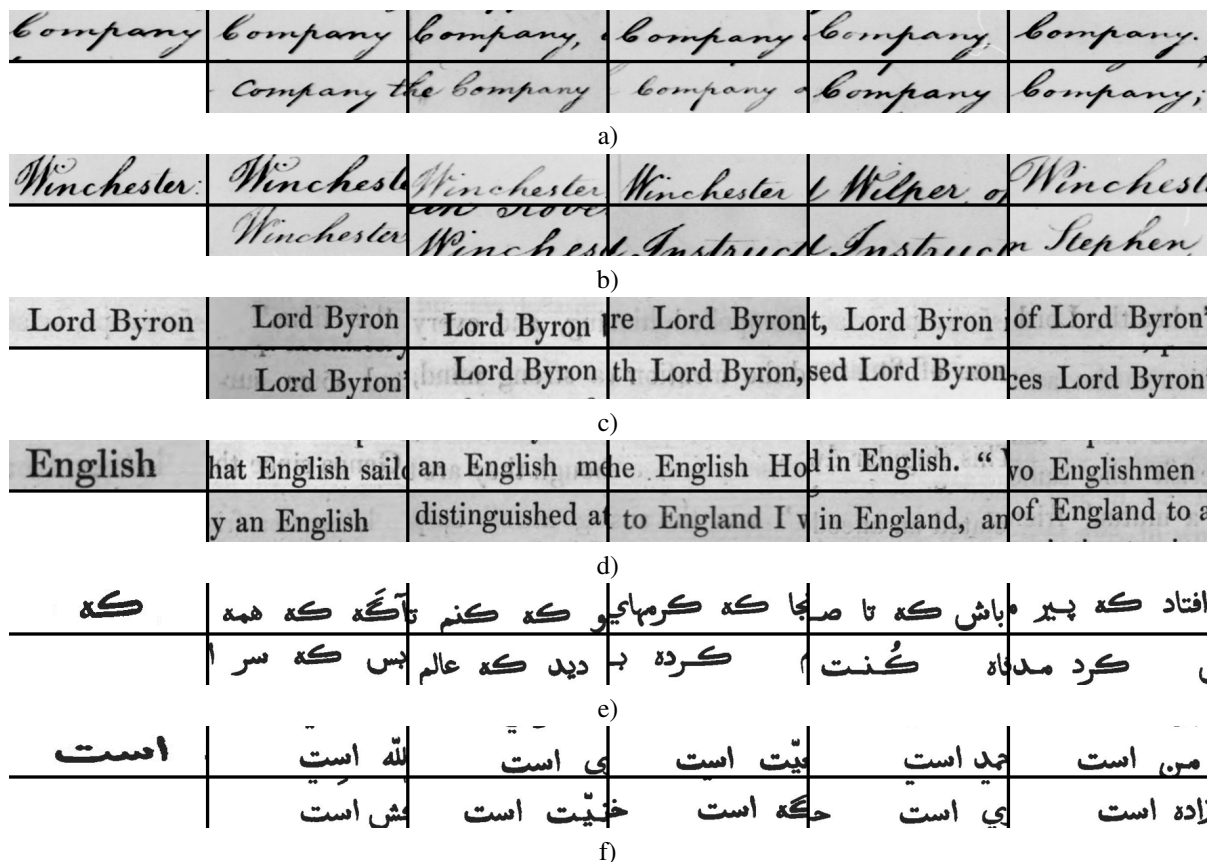 Company Company Company, Company Company, Company.
Company the Company Company Company Company;
a)
Winchester: Wincheste Winchester Winchester Wilper of Winchest
Winchester Winches Instruct Instruc Stephen,
b)
Lord Byron Lord Byron Lord Byron re Lord Byron t, Lord Byron of Lord Byron'
Lord Byron' Lord Byron th Lord Byron, sed Lord Byron ces Lord Byron
c)
English hat English sail an English me he English Ho d in English. “ wo Englishmen
y an English distinguished at to England I in England, an of England to a
d)
که آگَه که همه و که کنم نجا که کرمهاي باش که تا صـ افتاد که پـیر
بس که سر دید که عالم کـرده بـ کُـنـت کرد مـد
e)
است للّه است ي است يّت است حمد است من است
فش است خنيّت است حگه است ري است زاده است
f)